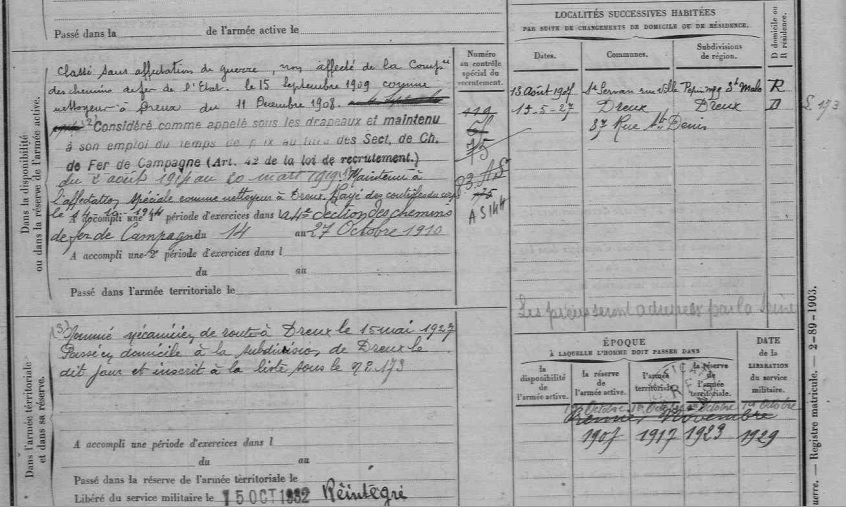 Passé dans la de l'armée active le
Dans la disponibilité
ou dans la réserve de l'armée active.
Classé sans affectation de guerre, non affecté de la Comp^nie
des chemins de fer de l'Etat. le 15 Septembre 1909 comme
nettoyeur à Dreux du 11 Décembre 1908.
Considéré comme appelé sous les drapeaux et maintenu
à son emploi du temps de paix au titre des Sect. de Ch.
de Fer de Campagne (Art. 42 de la loi de recrutement.)
du 2 août 1914 au 20 mars 1919. Maintenu à
l'affectation spéciale comme nettoyeur à Dreux. Rayé des contrôles du corps
le 14
A accompli une 1 période d'exercices dans la 4e Section des chemins
de fer de Campagne du 14 au 27 Octobre 1910
A accompli une 2e période d'exercices dans l
du au
Passé dans l'armée territoriale le
Numéro
au contrôle
spécial du
recrutement.
75
A S 144
LOCALITÉS SUCCESSIVES HABITÉES
PAR SUITE DE CHANGEMENTS DE DOMICILE OU DE RÉSIDENCE.
D domicile ou
R résidence.
Dates. Communes. Subdivisions
de région.
13 Août 1907 St Servan rue Ville Pépin n° 99 St Malo R
15-5-27 Dreux Dreux D
37 Rue St Denis
Dans l'armée territoriale
et dans sa réserve.
(3) Nommé mécanicien de route à Dreux le 15 mai 1927
Passe en domicile à la subdivision de Dreux le
dit jour et inscrit à la liste sous le n° 173
A accompli une période d'exercices dans l
du au
Passé dans la réserve de l'armée territoriale le
Libéré du service militaire le 15 OCT 1932 Réintégré
Les pièces seront adressées par la Seine
ÉPOQUE
À LAQUELLE L'HOMME DOIT PASSER DANS
DATE
de la
LIBÉRATION
du service
militaire.
la
disponibilité
de
l'armée active.
la réserve
de
l'armée active.
l'armée
territoriale.
la réserve
de
l'armée
territoriale.
1er Octobre 1er Octobre 1er Octobre 1er Octobre
1907 1917 1923 1929
uerre. — Registre matricule. — 2-89-1903.